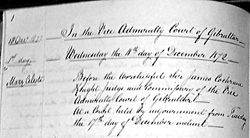 1
In the Vice Admiralty Court of Gibraltar
18 Dec 1872
Wednesday the 18th day of December 1872
1st day
Mary Celeste
Before the Worshipful Sir James Cochrane
Knight Judge and Commissary of the Vice
Admiralty Court of Gibraltar
At a Court held by adjournment from
the 17th day of December instant